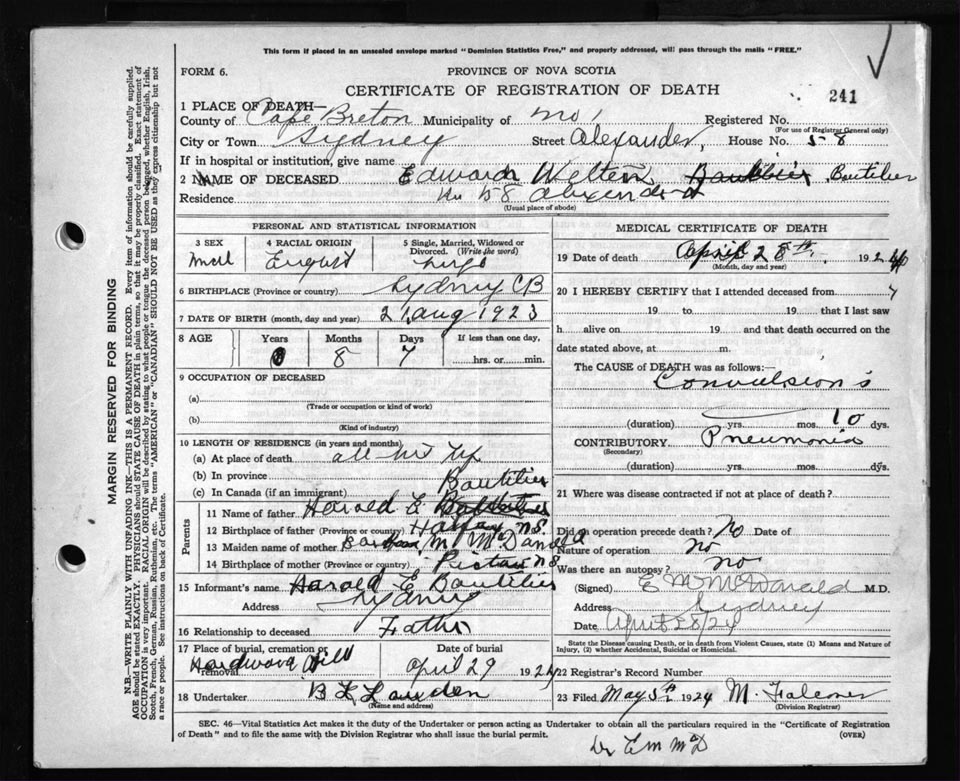 This form if placed in an unsealed envelope marked "Dominion Statistics Free," and properly addressed, will pass through the mails "FREE."
FORM 6. PROVINCE OF NOVA SCOTIA
CERTIFICATE OF REGISTRATION OF DEATH
241
1 PLACE OF DEATH—
County of Cape Breton Municipality of Registered No.
(For use of Registrar General only)
City or Town Sydney Street Alexander, House No. 58
If in hospital or institution, give name
2 NAME OF DECEASED Edward Welten Boutilier
Residence No 58 Alexander
(Usual place of abode)
PERSONAL AND STATISTICAL INFORMATION
3 SEX 4 RACIAL ORIGIN 5 Single, Married, Widowed or Divorced. (Write the word)
6 BIRTHPLACE (Province or country) Sydney CB
7 DATE OF BIRTH (month, day and year) 21 Aug 1923
8 AGE Years Months Days If less than one day,
0 8 7 hrs. or min.
9 OCCUPATION OF DECEASED
(a)
(Trade or occupation or kind of work)
(b)
(Kind of industry)
10 LENGTH OF RESIDENCE (in years and months)
(a) At place of death all
(b) In province
(c) In Canada (if an immigrant) Boutilier
Parents
11 Name of father Harold E
12 Birthplace of father (Province or country) Halifax N.S.
13 Maiden name of mother M. McDonald
14 Birthplace of mother (Province or country) Pictou N S
15 Informant's name Harold E Boutilier
Address Sydney
16 Relationship to deceased Father
17 Place of burial, cremation or removal Date of burial
Hardwood Hill April 29 1924
18 Undertaker
(Name and address)
MEDICAL CERTIFICATE OF DEATH
19 Date of death April 28th, 192
(Month, day and year)
20 I HEREBY CERTIFY that I attended deceased from
19 to 19 that I last saw
h alive on 19 and that death occurred on
date stated above, at m.
The CAUSE of DEATH was as follows:—
Convulsion's
(duration) yrs. mos. 10 dys.
CONTRIBUTORY Pneumonia
(Secondary)
(duration) yrs. mos. dys.
21 Where was disease contracted if not at place of death?
Did an operation precede death? No Date of
Nature of operation no
Was there an autopsy? no
(Signed) E M McDonald M.D.
Address Sydney
Date April 28/24
State the Disease causing Death, or in death from Violent Causes, state (1) Means and Nature of Injury, (2) whether Accidental, Suicidal or Homicidal.
22 Registrar's Record Number
23 Filed May 5th 1924 M. Falconer
(Division Registrar)
SEC. 46—Vital Statistics Act makes it the duty of the Undertaker or person acting as Undertaker to obtain all the particulars required in the "Certificate of Registration of Death" and to file the same with the Division Registrar who shall issue the burial permit. (OVER)
Dr E M McD
MARGIN RESERVED FOR BINDING
N.B.—WRITE PLAINLY WITH UNFADING INK—THIS IS A PERMANENT RECORD. Every item of information should be carefully supplied.
AGE should be stated EXACTLY. PHYSICIANS should STATE CAUSE OF DEATH in plain terms, so that it may be properly classified. Exact statement of
OCCUPATION is very important. RACIAL ORIGIN will be described by stating to what people or tongue the deceased person belonged, whether English, Irish,
Scotch, French, German, Russian, Ruthenian, etc. The terms "AMERICAN" or "CANADIAN" SHOULD NOT BE USED as they express citizenship but not
a race or people. See instructions on back of Certificate.